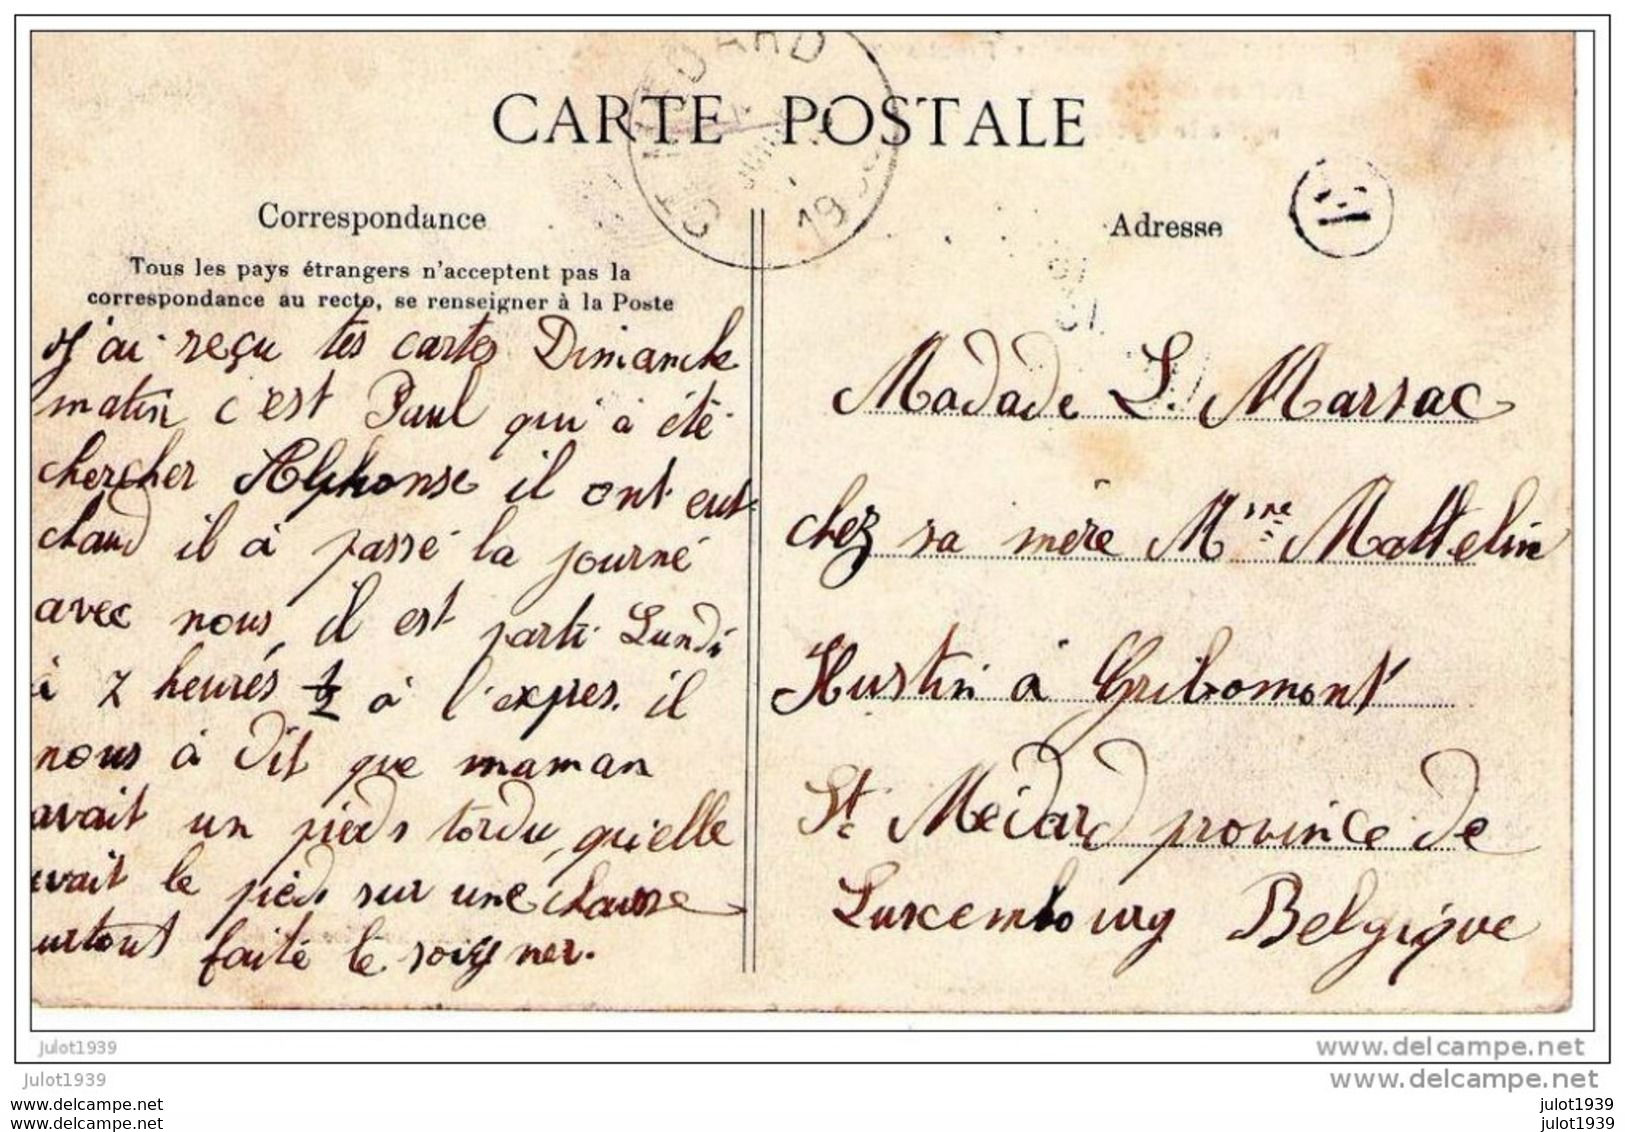 CARTE POSTALE
ST MEDARD
19
Correspondance
Tous les pays étrangers n'acceptent pas la
correspondance au recto, se renseigner à la Poste
J'ai reçu tes cartes Dimanche
matin c'est Paul qui à été
chercher Alphonse il ont eut
chaud il à passé la journé
avec nous, il est parti Lundi
à 7 heurés 1/2 à l'expres. il
nous à dit que maman
avait un pieds tordu, qu'elle
avait le pieds sur une chaisse
urtout faite le soigner.
Adresse
Madade L. Marsac
chez sa mère Mme Mattelin
Hustin à Gribomont
St Meidard province de
Luxembourg Belgique
julot1939
julot1939
www.delcampe.net
www.delcampe.net
www.delcampe.net
www.delcampe.net
julot1939
julot1939